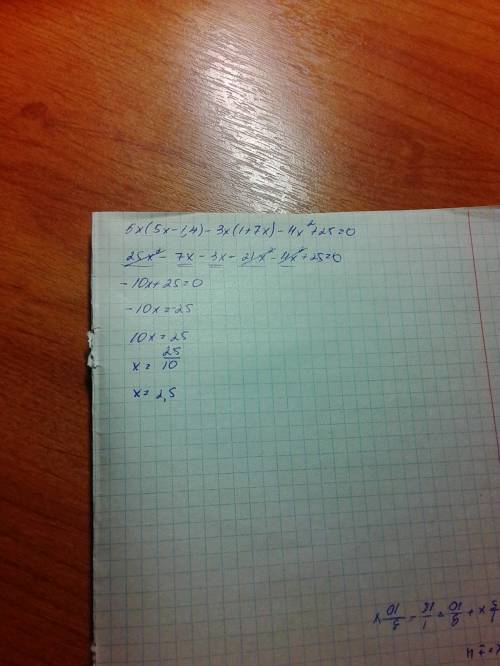 5x(5x-1,4)-3x(1+7x)-4x²+25=0
25x²-7x-3x-21x²-4x²+25=0
-10x+25=0
-10x=-25
10x=25
x=25/10
x=2,5